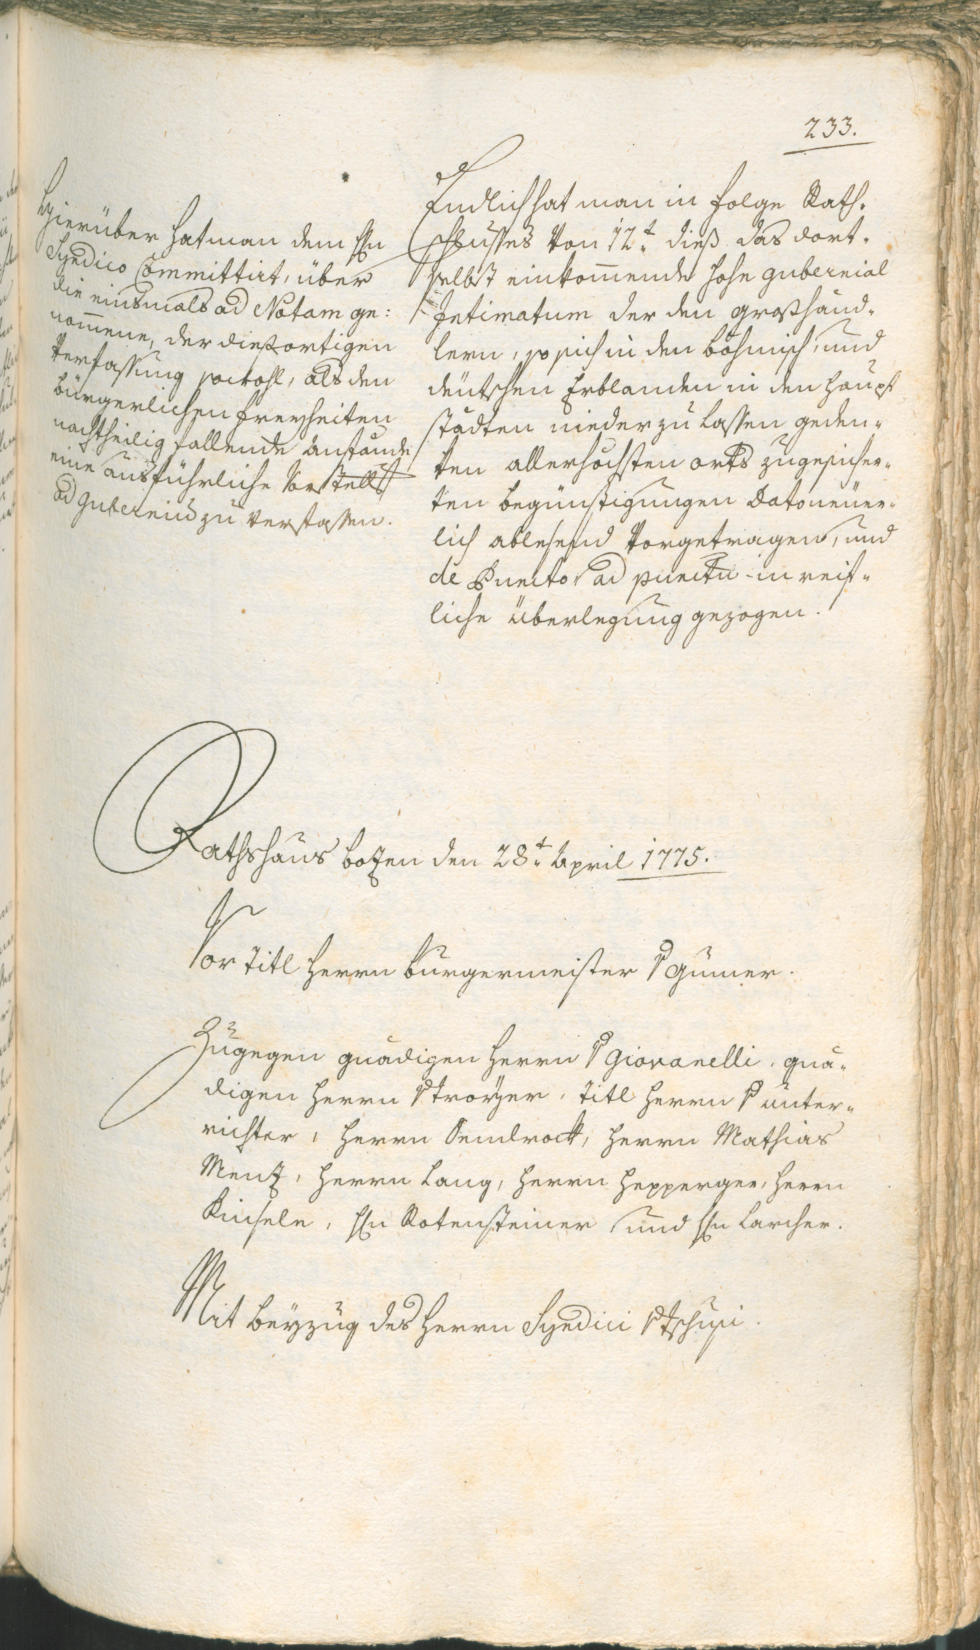 233.
Hierüber hat man dem Hn
Syndico Committirt, über
die einsmals ad Notam ge:
nom̄ene, der diesortigen
Verfassung sowohl, als den
bürgerlichen Freyheiten
nachtheilig fallende Anstände
eine ausführliche Vorstell
ad Gubernium zu verfassen.
Endlich hat man in Folge Rath,
Schlusses von 12t dieß das dort,
selbst einkom̄ende hohe Gubernial
Intimatum der den Großhänd,
lern, so sich in den böhmisch, und
deütschen Erblanden in den Haupt
städten nieder zu lassen geden,
ken allerhöchsten orts zugesicher,
ten begünstigungen dato neüer,
lich ablesend vorgetragen, und
de Puncto ad punctu in reif,
liche Überlegung gezogen.
Rathshaus bozen den 28t April 1775.
Vor Titl Herrn burgermeister v Gumer.
Zugegen gnädigen Herrn v Giovanelli, gnä,
digen Herrn v Troyer, Titl Herrn v unter,
richter, Herrn Sendrock, Herrn Mathias
Menz, Herrn Lang, Herrn Hepperger, Herrn
Kinsele, Hn Rotensteiner und Hn Larcher.
Mit beyzug des Herrn Syndici v Tschusi.